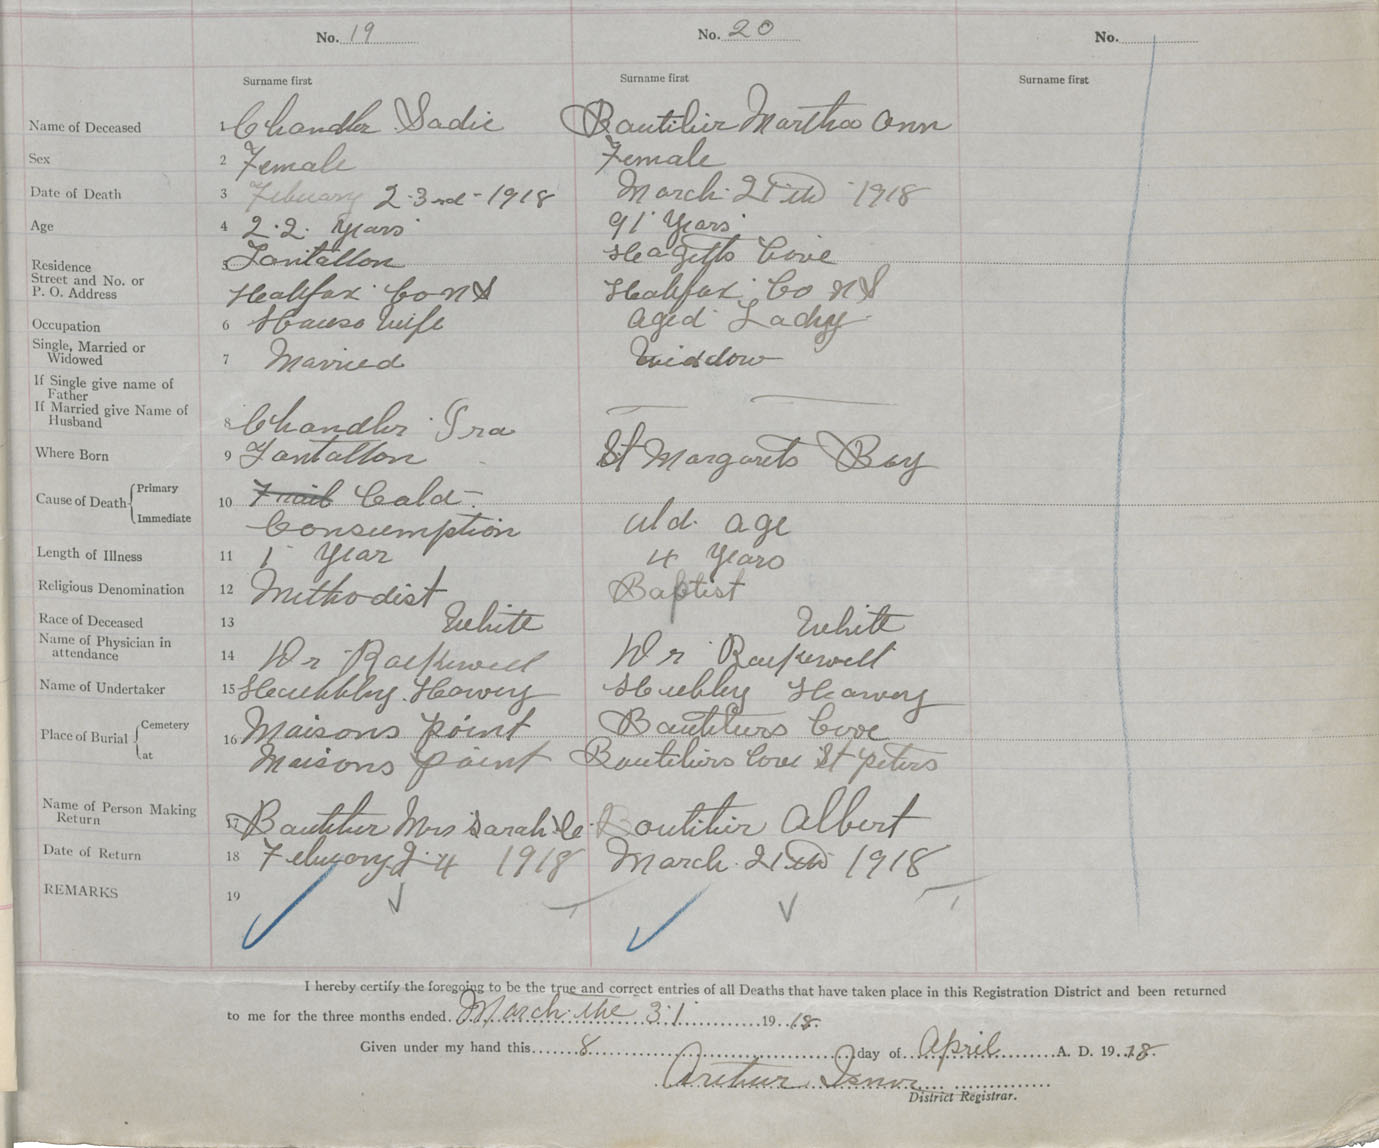 No. 19 No. 20 No.
Surname first Surname first Surname first
Name of Deceased 1 Chandler Sadie Boutilier Martha Ann
Sex 2 Female Female
Date of Death 3 Febuary 23rd - 1918 March 21th 1918
Age 4 22 Years 91 Years
Residence 5 Tantallon Hagetts Cove
Street and No. or
P. O. Address Halifax Co NS Halifax Co NS
Occupation 6 House wife aged Lady
Single, Married or
Widowed 7 Married widdow
If Single give name of
Father
If Married give Name of
Husband 8 Chandler Ira
Where Born 9 Tantallon St Margarets Bay
Cause of Death Primary 10 Cald
Immediate Consumption old age
Length of Illness 11 1 Year 4 Years
Religious Denomination 12 Methodist Baptist
Race of Deceased 13 White White
Name of Physician in
attendance 14 Dr Dr
Name of Undertaker 15 Hubbly Harvey Hubbly Harvey
Place of Burial Cemetery 16 Maisons point Boutiliers Cove
at Maisons point Boutiliers Cove St Peters
Name of Person Making
Return 17 Boutilier Mrs Sarah Boutilier Albert
Date of Return 18 Febuary 24 1918 March 21th 1918
REMARKS 19
I hereby certify the foregoing to be the true and correct entries of all Deaths that have taken place in this Registration District and been returned
to me for the three months ended. March the 31 19 18.
Given under my hand this 8 day of April A. D. 19 18.
Arthur Isnor
District Registrar.